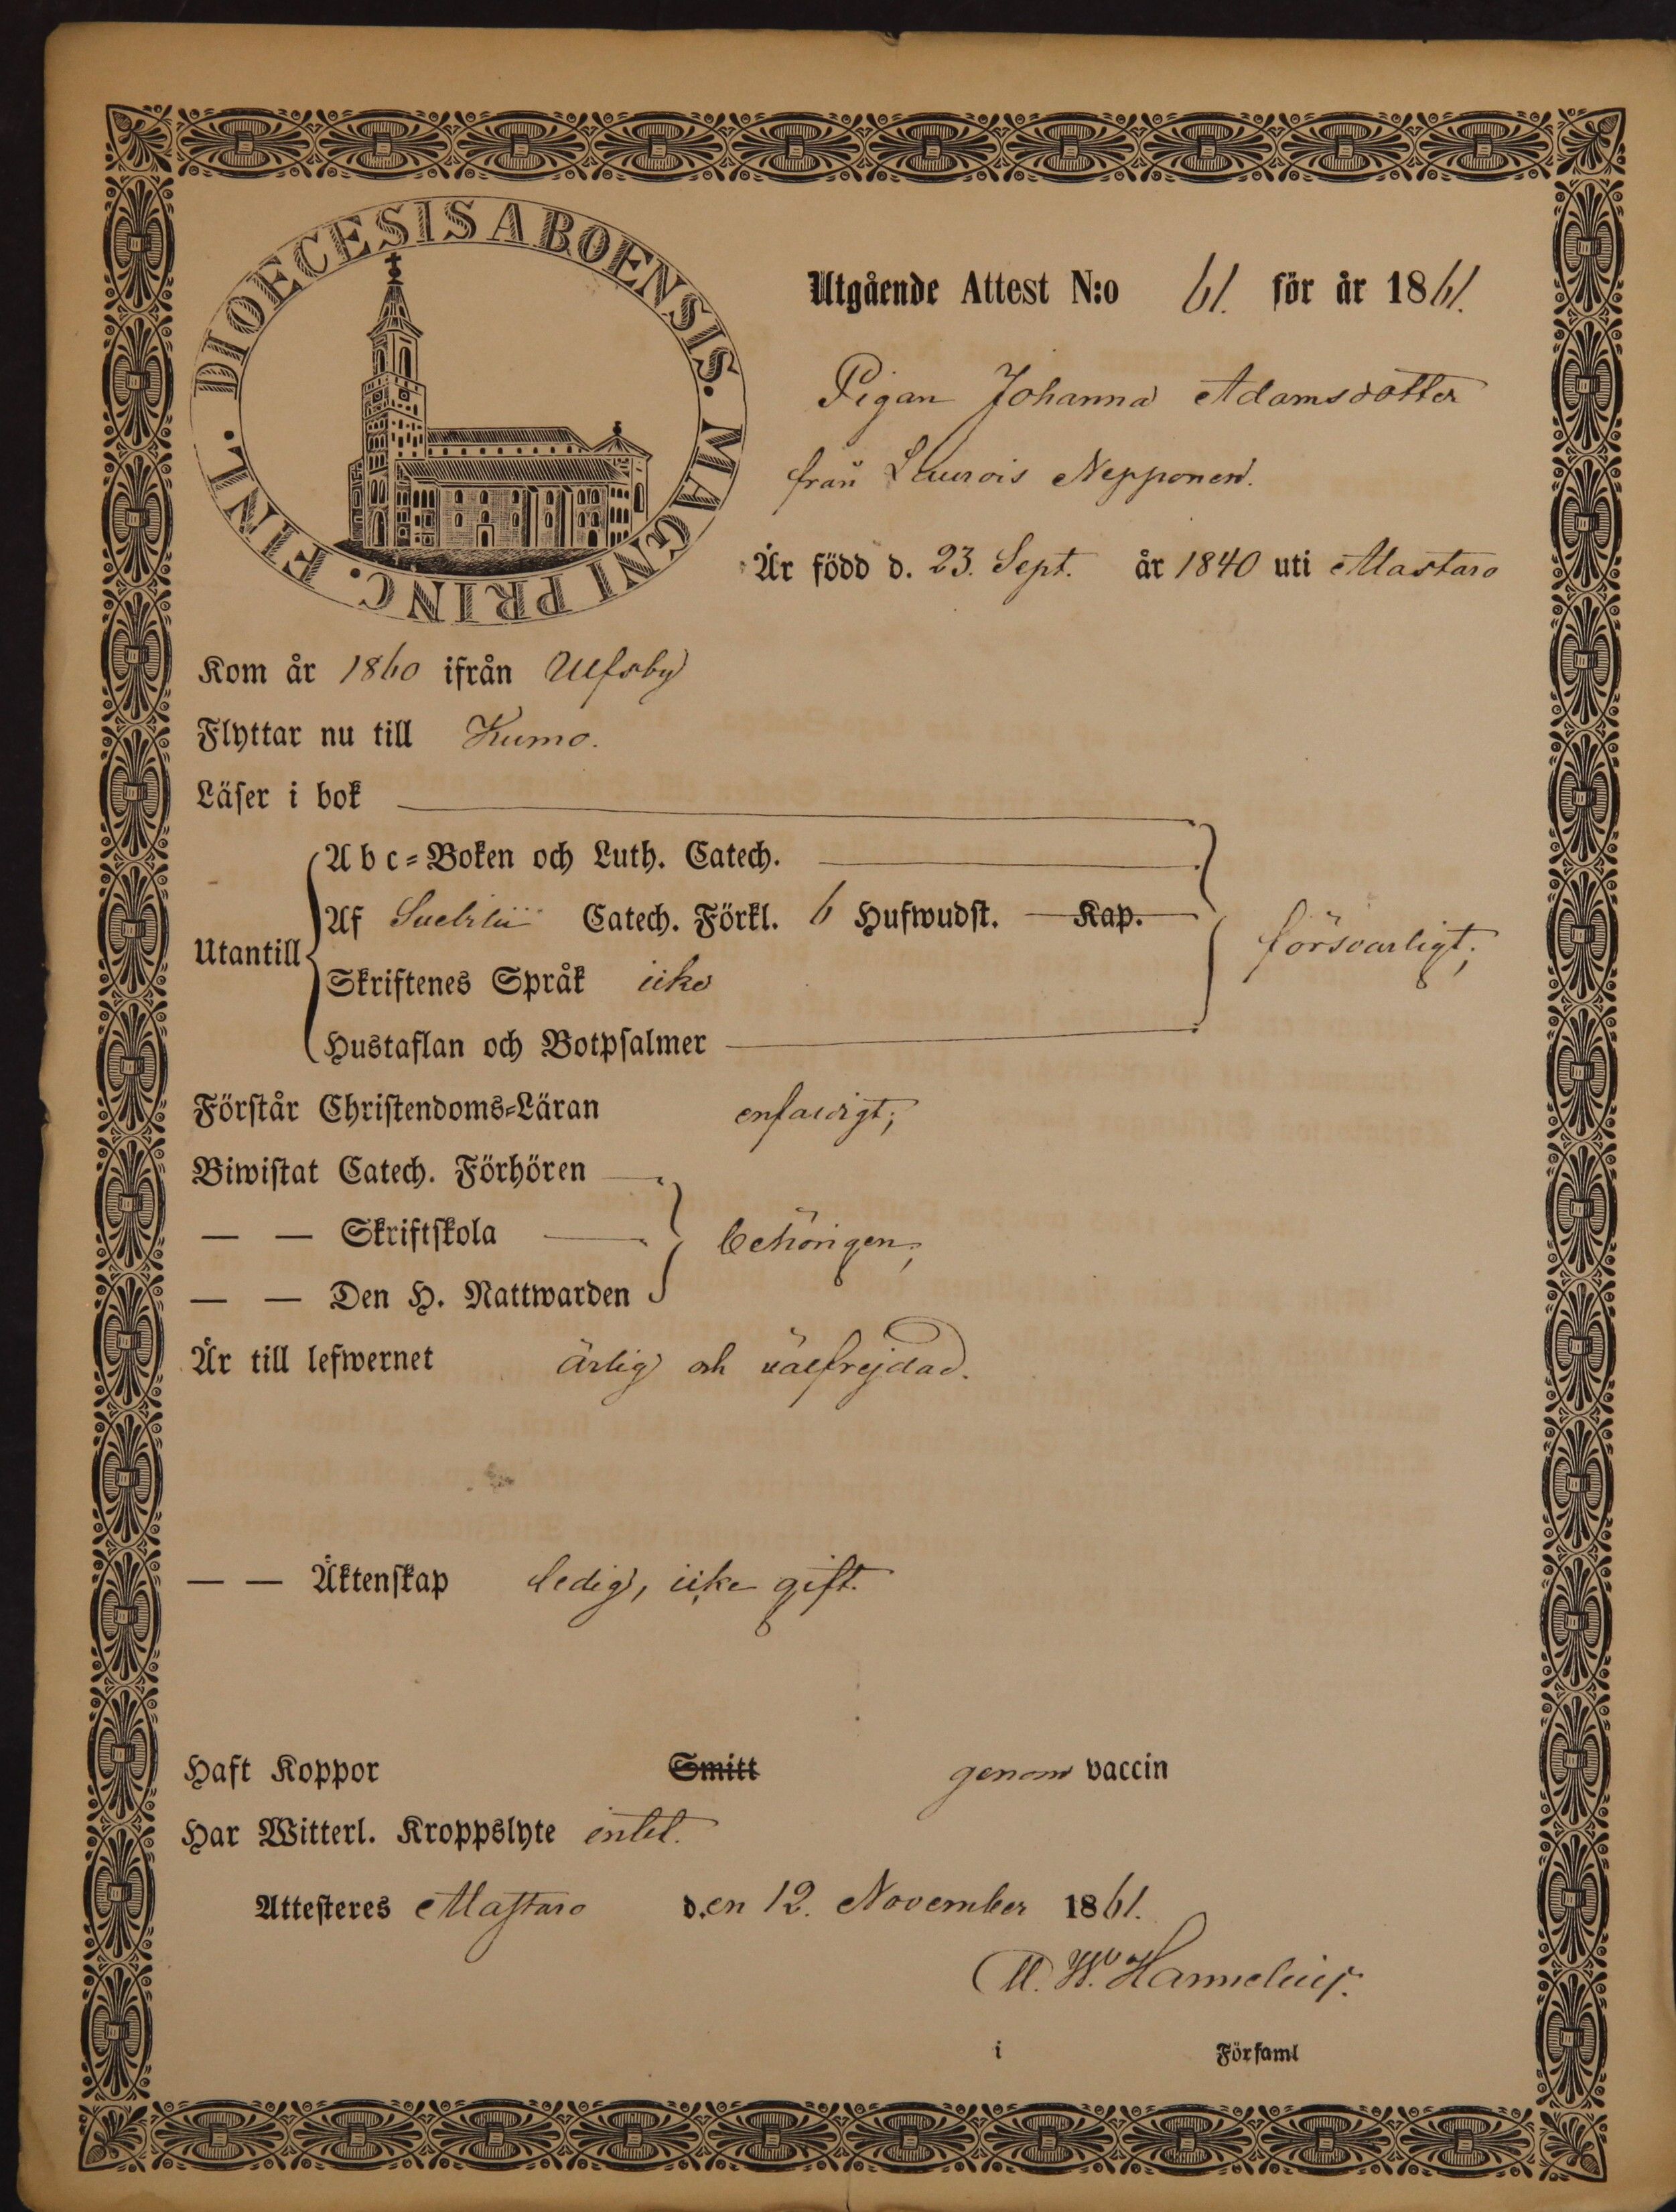 DIOECESIS ABOENSIS. MAGNI PRINC. FINL.
Utgående Attest N:o 61. för år 1861.
Pigan Johanna Adamsdotter
från Laurois Nepponen.
Är född d. 23. Sept. år 1840 uti Mastaro
Kom år 1860 ifrån Ulfsby
Flyttar nu till Kumo.
Läser i bok
Utantill
Abc-Boken och Luth. Catech.
Af Catech. Förkl. 6 Hufwudst. Kap.
försvarligt;
Skriftenes Språk icke
Hustaflan och Botpsalmer
Förstår Christendoms-Läran enfaldigt;
Biwistat Catech. Förhören
— — Skriftskola behörigen;
— — Den H. Nattwarden
Är till lefwernet ärlig och välfrejdad.
— — Äktenskap ledig, icke gift.
Haft Koppor Smitt genom vaccin
Har Witterl. Kroppslyte intet.
Attesteres Mastaro d.en 12. November 1861.
M. W. Hannelius.
i Församl